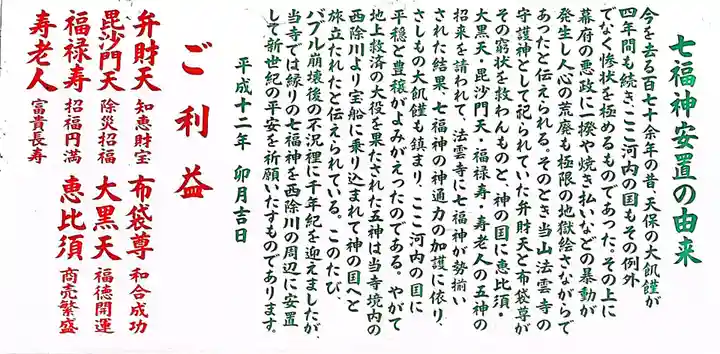 七福神安置の由来
今を去る百七十余年の昔、天保の大飢饉が
四年間も続き、ここ河内の国もその例外
でなく惨状を極めるものであった。その上に
幕府の悪政に一揆や焼き払いなどの暴動が
発生し人心の荒廃も極限の地獄絵さながらで
あったと伝えられる。そのとき当山法雲寺の
守護神として祀られていた弁財天と布袋尊が
その窮状を救わんものと、神の国に恵比須・
大黒天・毘沙門天・福禄寿・寿老人の五神の
招来を請われて、法雲寺に七福神が勢揃い
された結果、七福神の神通力の加護に依り、
さしもの大飢饉も鎮まり、ここ河内の国に
平穏と豊穣がよみがえったのである。やがて
地上救済の大役を果たされた五神は当寺境内の
西除川より宝船に乗り込まれて神の国へと
旅立たれたと伝えられている。このたび、
バブル崩壊後の不況裡に千年紀を迎えましたが、
当寺では縁りの七福神を西除川の周辺に安置
して新世紀の平安を祈願いたすものであります。
平成十二年 卯月吉日
ご利益
弁財天 知恵財宝 布袋尊 和合成功
毘沙門天 除災招福 大黒天 福徳開運
福禄寿 招福円満 恵比須 商売繁盛
寿老人 富貴長寿